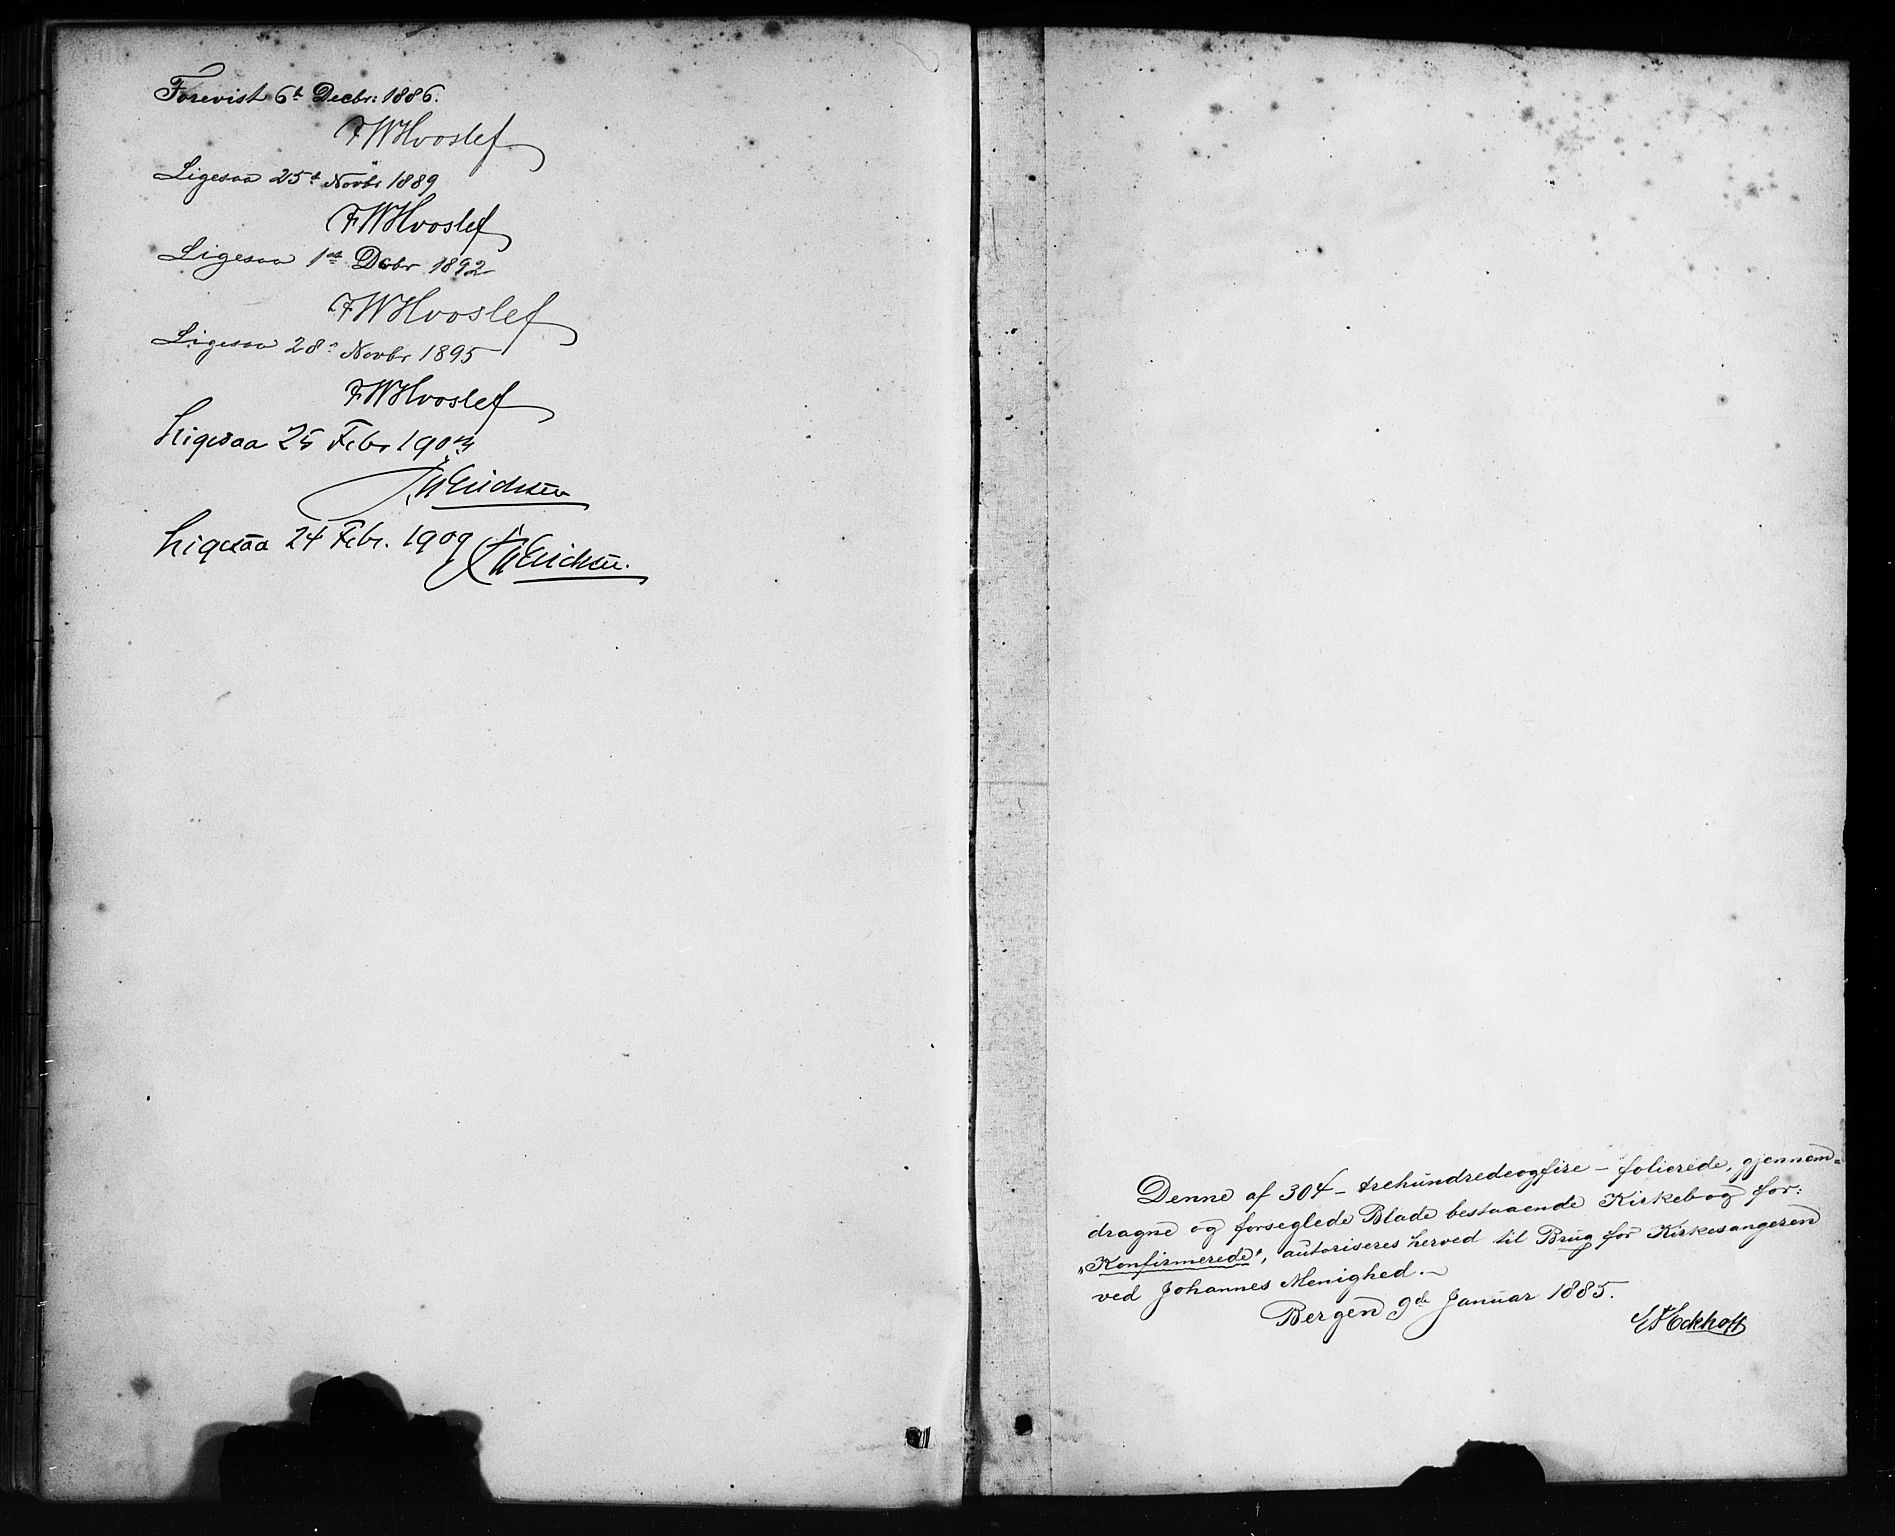 Forevist 6t Decbr: 1886.
FWHvoslef
Ligesaa 25t Novbr 1889
FWHvoslef
Ligesaa 1st Decbr 1892
FWHvoslef
Ligesaa 28t Novbr 1895
FWHvoslef
Ligesaa 25 Febr 1903
JWErichsen
Ligesaa 24 Febr. 1909 JWErichsen.
Denne af 304 – trehundredeogfire – folierede, gjennem=
dragne og forseglede Blade bestaaende Kirkebog for:
„Konfirmerede", autoriseres herved til Brug for Kirkesangeren
ved Johannes Menighed. –
Bergen 9de Januar 1885.
Eckhoff